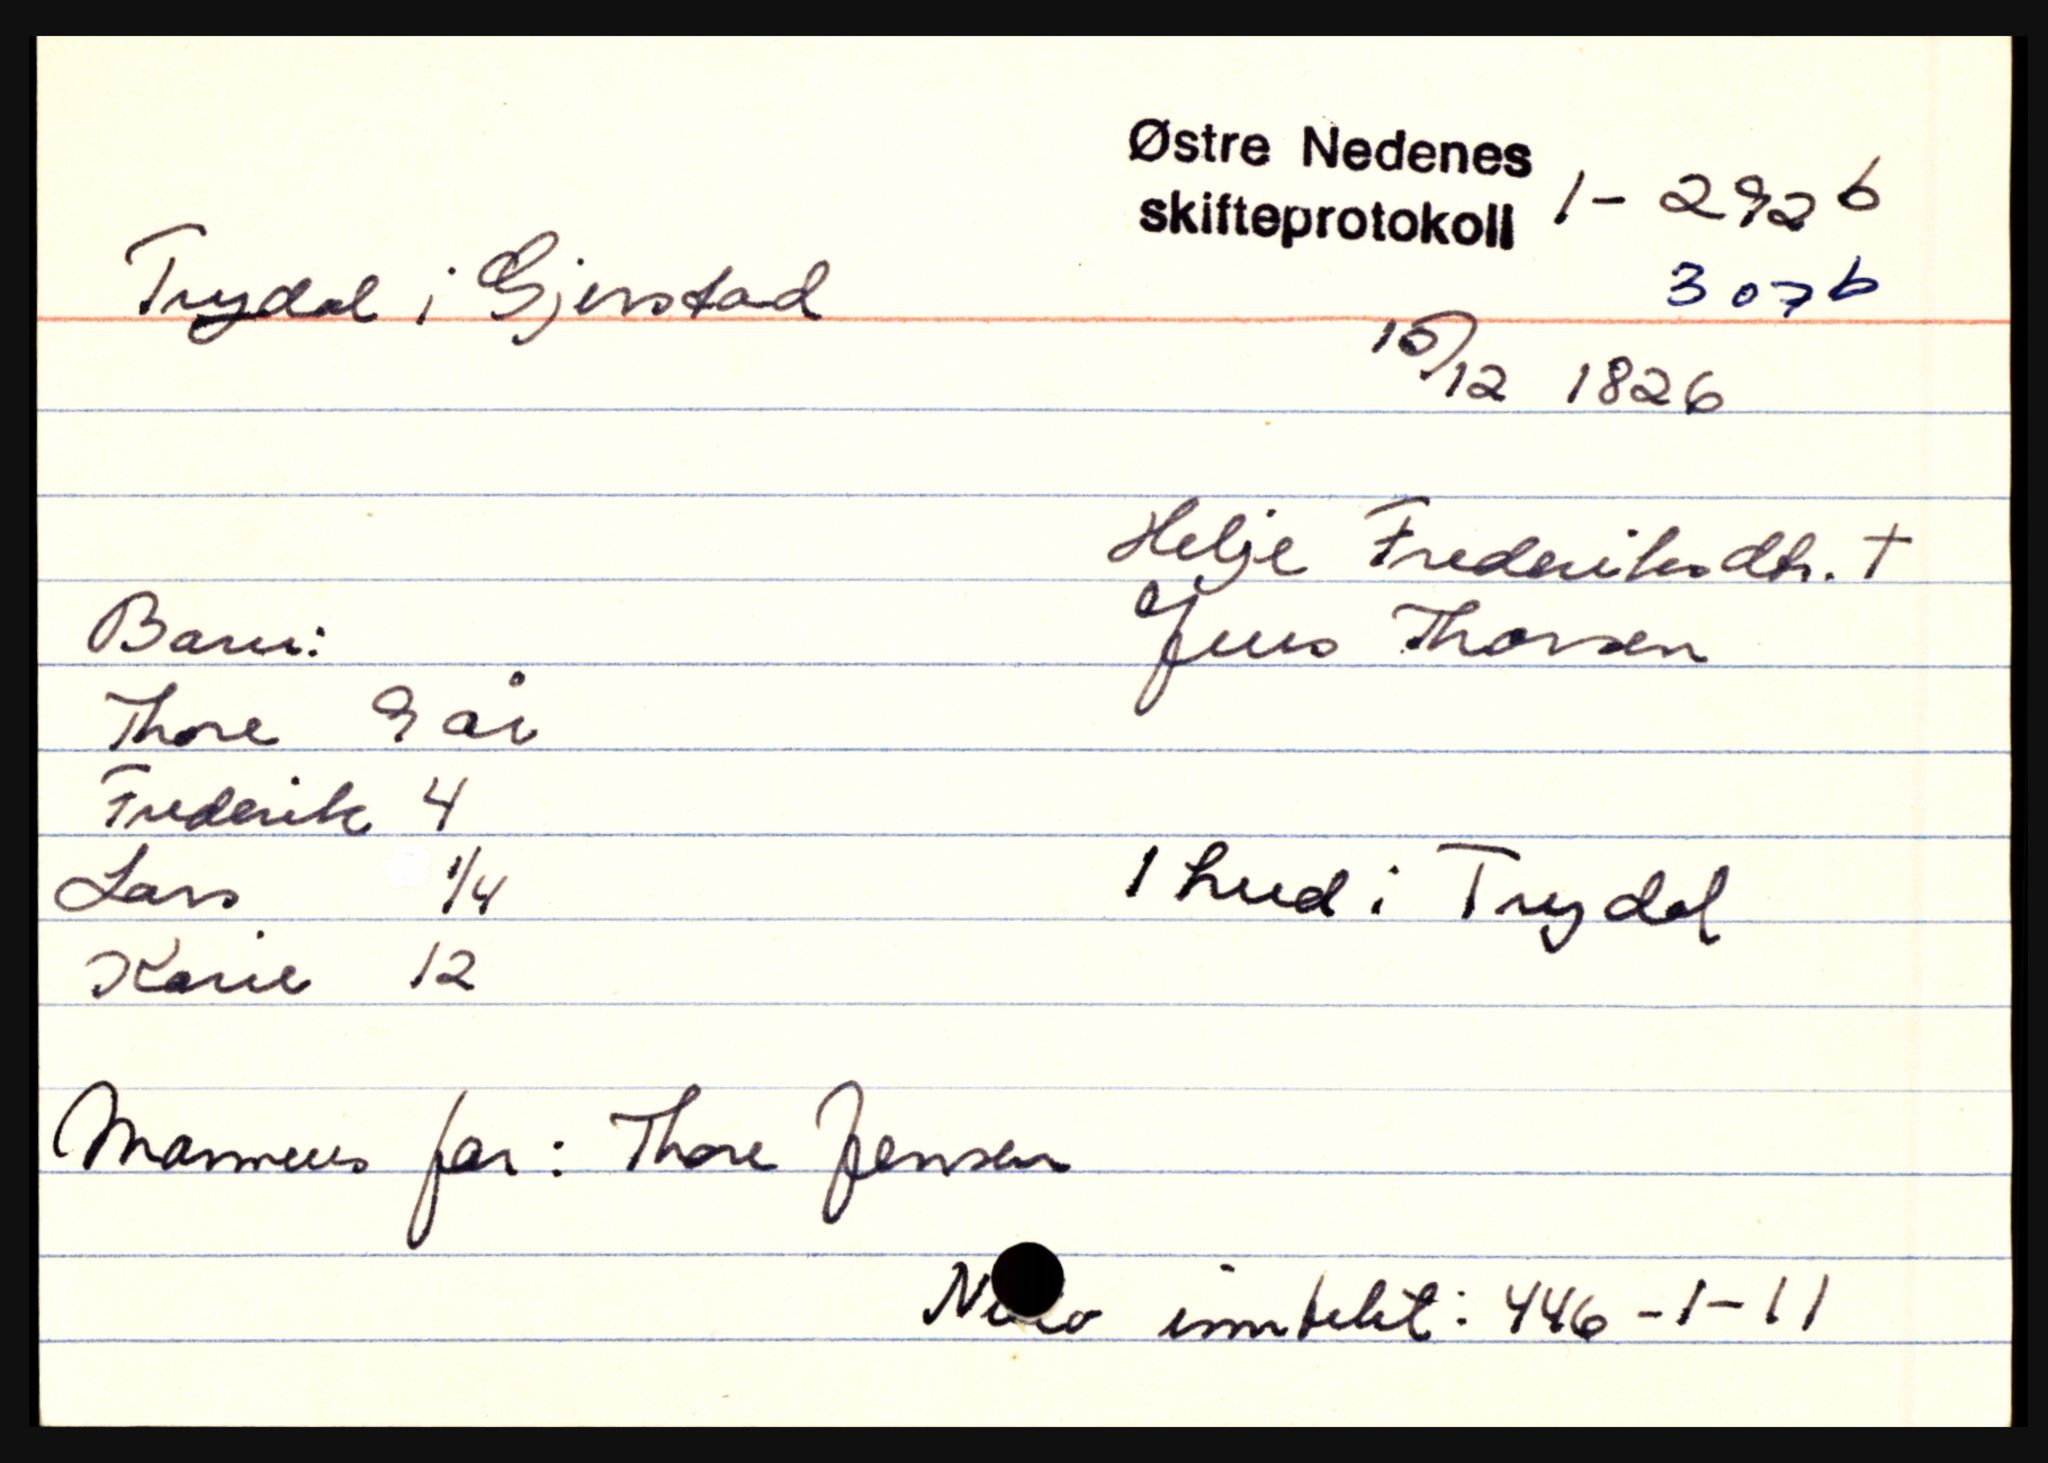 Østre Nedenes
skifteprotokoll 1-292b
307b
Trydal i Gjerstad
15/12 1826
Helje Frederiksdtr. †
Jens Thorsen
Barn:
Thore 9 år
Frederik 4
Lars 1/4
Karie 12
1 hud i Trydal
Mannens far: Thore Jensen
inntekt: 446-1-11